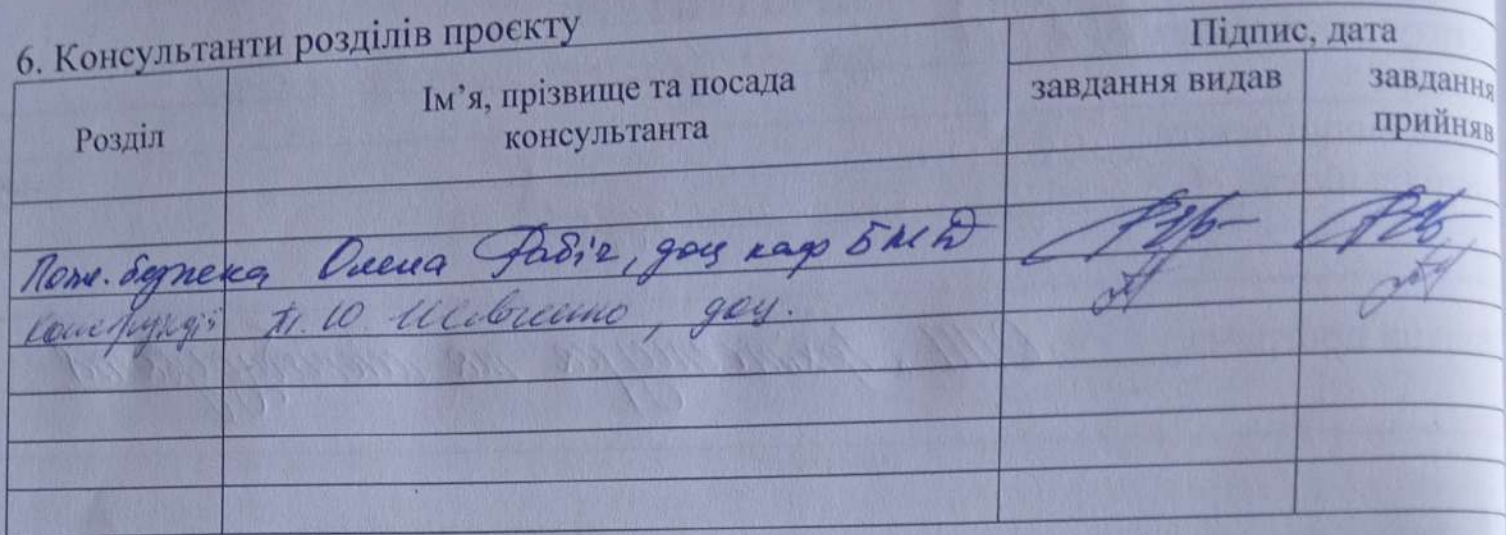 6. Консультанти розділів проєкту
Розділ
Ім’я, прізвище та посада
консультанта
Підпис, дата
завдання видав
завдання
прийняв
Пож. безпека Олена Рабіч, доц каф БМД
Конструкції Т. Ю Шевченко, доц.